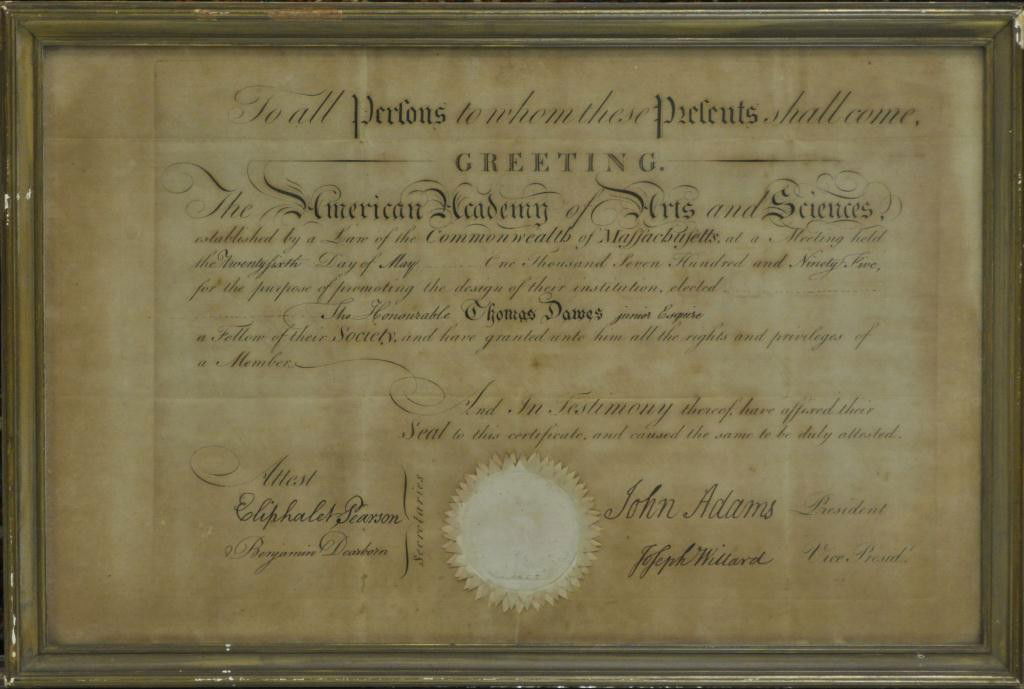 To all Persons to whom these Presents shall come,
GREETING.
The American Academy of Arts and Sciences,
established by a Law of the Commonwealth of Massachusetts, at a Meeting held
the Twenty sixth Day of May One Thousand Seven Hundred and Ninety Five,
for the purpose of promoting the design of their institution, elected
The Honourable Thomas Dawes junior Esquire
a Fellow of their Society, and have granted unto him all the rights and privileges of
a Member.
And In Testimony thereof, have affixed their
Seal to this certificate, and caused the same to be duly attested.
Attest
Eliphalet Pearson
Benjamin Dearborn
Secretaries
John Adams President
Joseph Willard Vice Presidt.